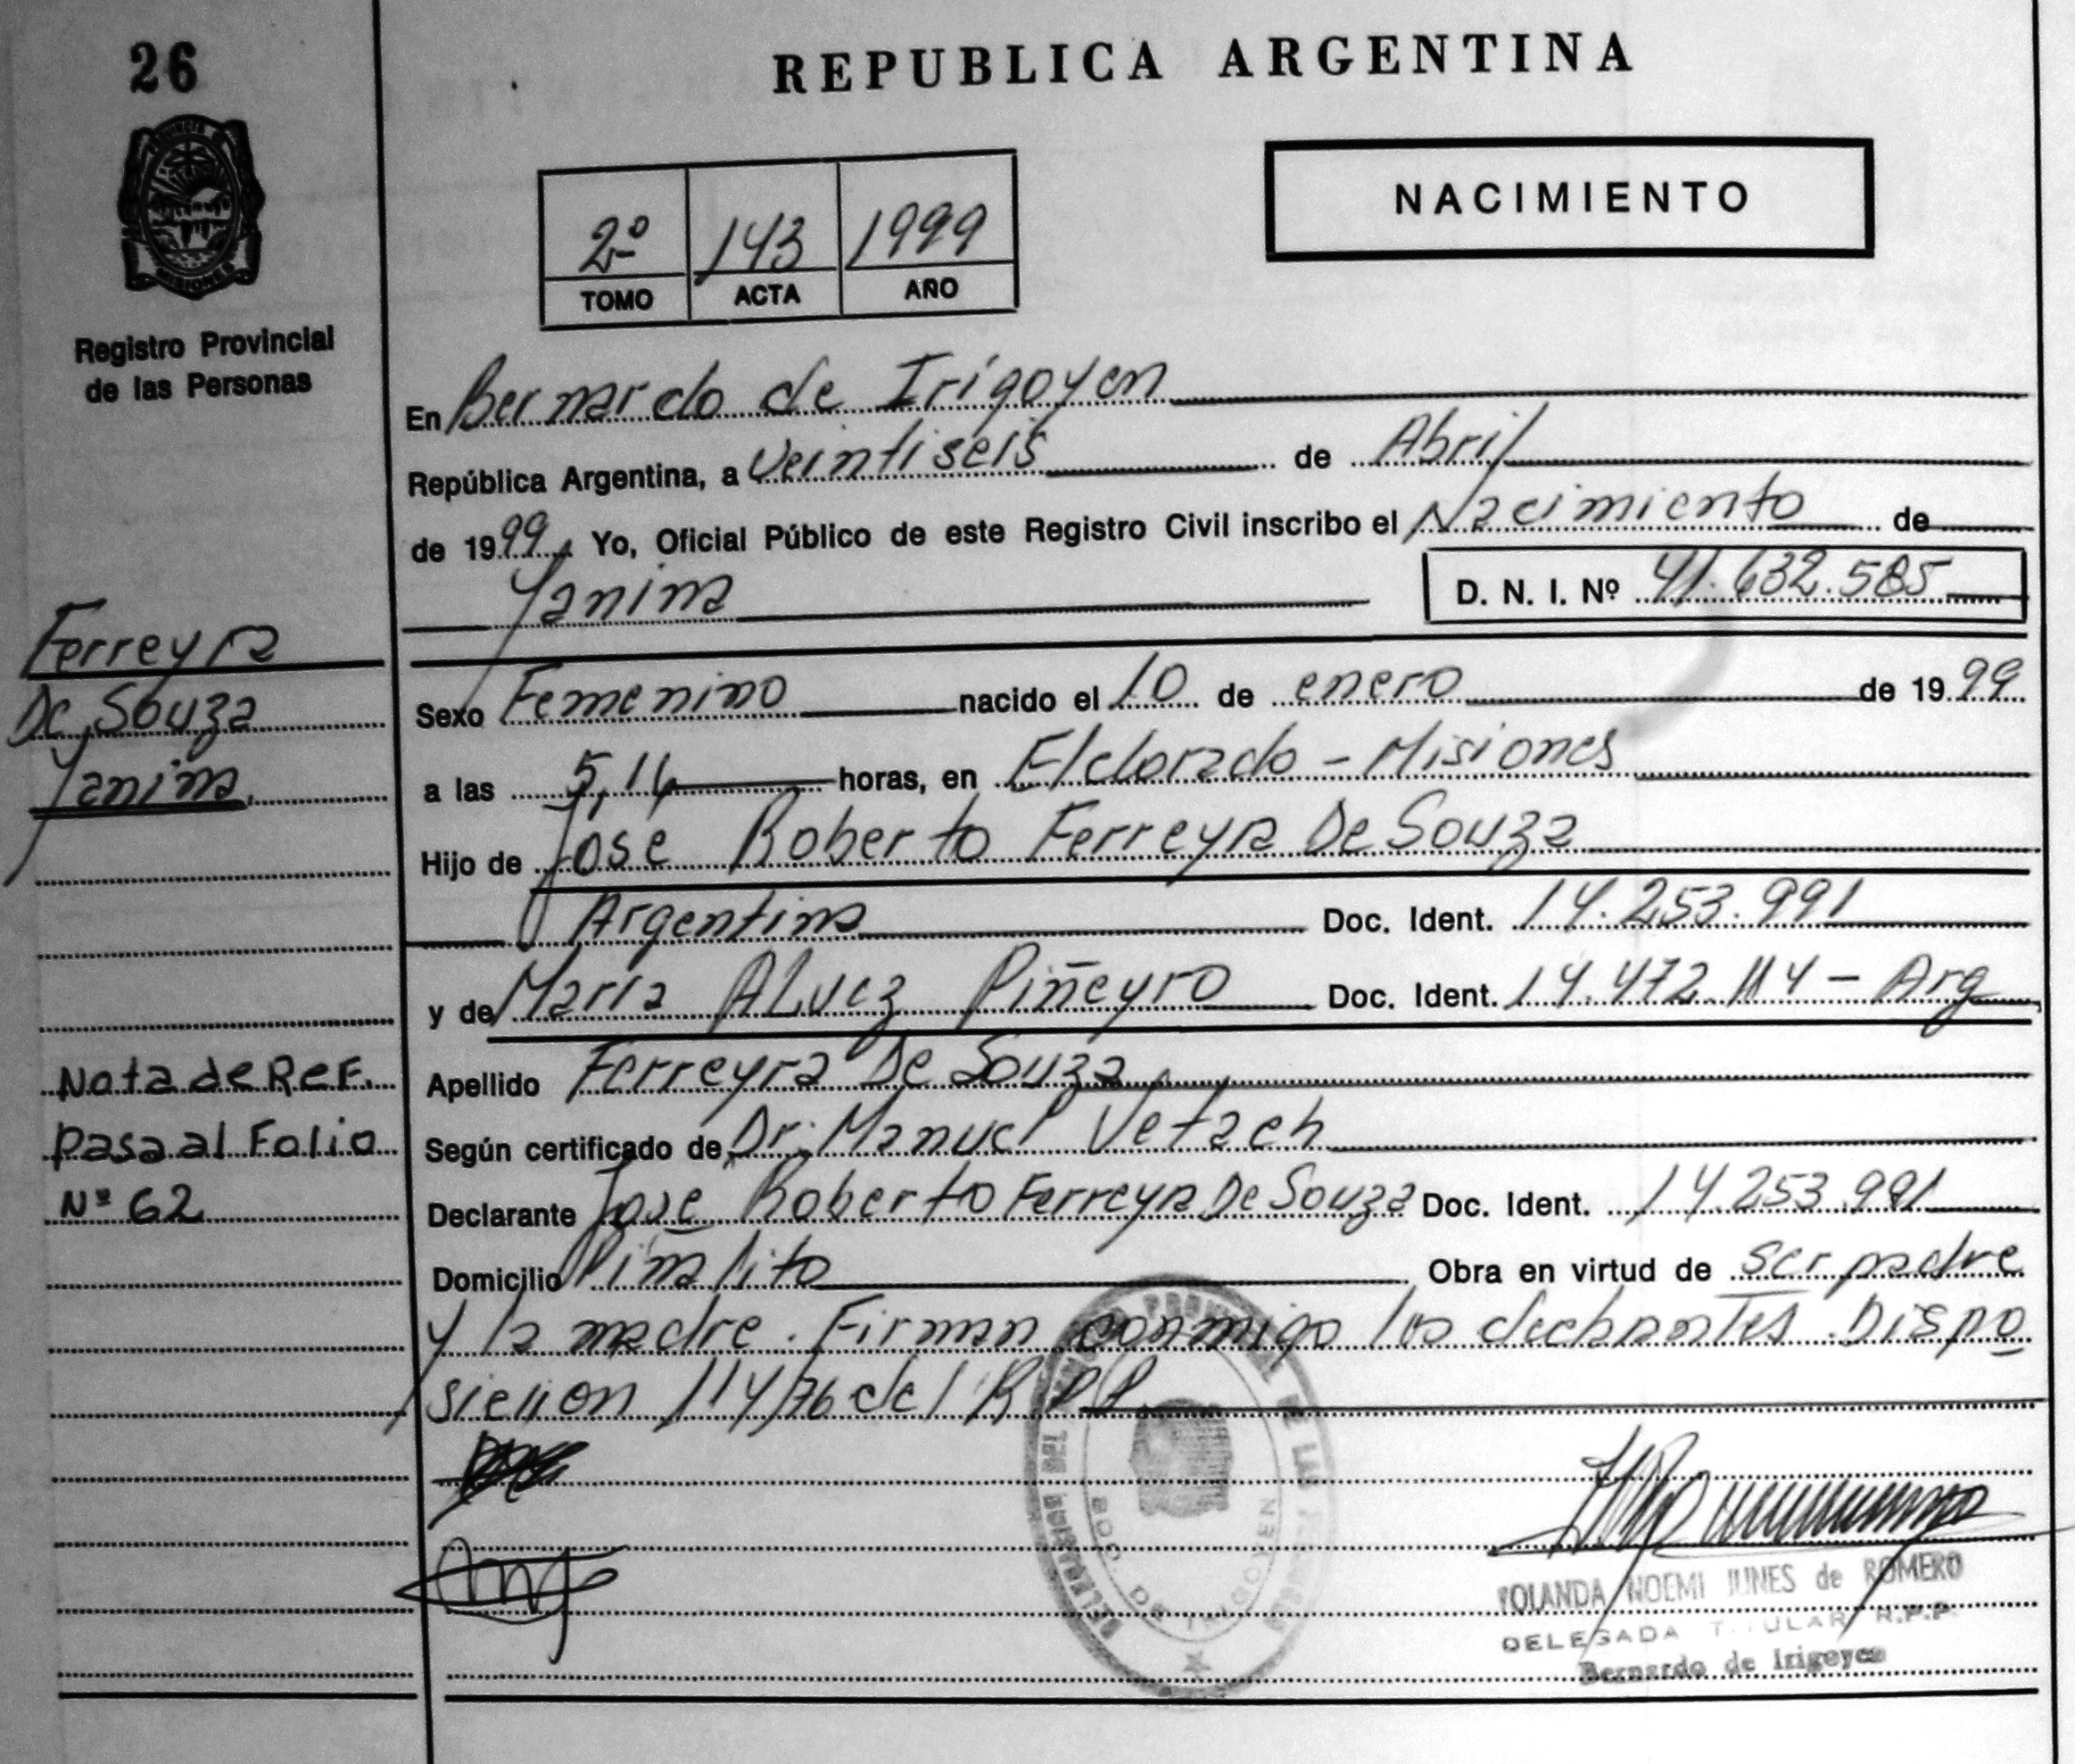 26
REPUBLICA ARGENTINA
NACIMIENTO
2º 143 1999
TOMO ACTA AÑO
Registro Provincial
de las Personas
En Bernardo de Irigoyen
República Argentina, a Veintiseis de Abril
de 1999. Yo, Oficial Público de este Registro Civil inscribo el Nacimiento de
Yanina D. N. I. Nº 41.632.585
Ferreyra
De Souza
Yanina
Sexo Femenino nacido el 10 de enero de 1999
a las 5,14 horas, en Eldorado - Misiones
Hijo de José Roberto Ferreyra De Souza
Argentina Doc. Ident. 14.253.991
y de María ALvez Piñeyro Doc. Ident. 14.472.114 - Arg
Nota de Ref.
pasa al Folio
Nº 62
Apellido Ferreyra De Souza
Según certificado de Dr. Manuel Vetach
Declarante José Roberto Ferreyra De Souza Doc. Ident. 14.253.991
Domicilio Piñalito Obra en virtud de ser padre
y la madre. Firman conmigo los declarantes. Dispo
sicion 114/76 del R P P
BDO. DE IRIGOYEN
YOLANDA NOEMI de ROMERO
DELEGADA TITULAR R.P.P.
Bernardo de Irigoyen